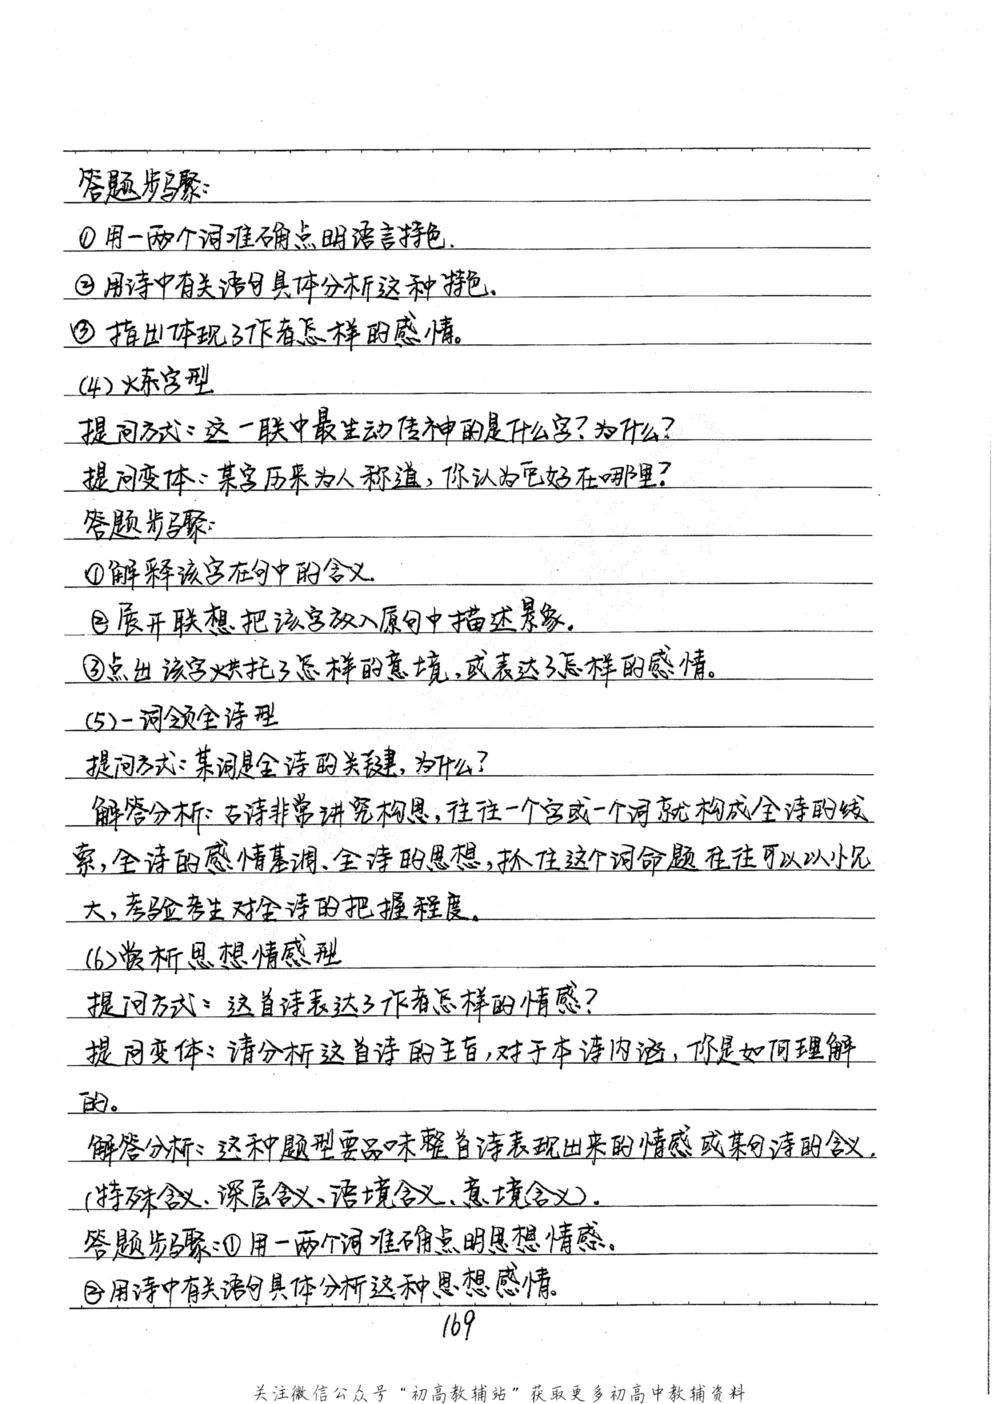 答题步骤:
①用一两个词准确点明语言特色.
②用诗中有关语句具体分析这种特色.
③指出体现了作者怎样的感情。
(4)炼字型
提问方式:这一联中最生动传神的是什么字?为什么?
提问变体:某字历来为人称道,你认为它好在哪里?
答题步骤:
①解释该字在句中的含义.
②展开联想把该字放入原句中描述景象。
③点出该字烘托了怎样的意境,或表达了怎样的感情。
(5)一词领全诗型
提问方式:某词是全诗的关键,为什么?
解答分析:古诗非常讲究构思,往往一个字或一个词就构成全诗的线
索,全诗的感情基调、全诗的思想,抓住这个词命题往往可以以小见
大,考验考生对全诗的把握程度。
(6)赏析思想情感型
提问方式:这首诗表达了作者怎样的情感?
提问变体:请分析这首诗的主旨,对于本诗内涵,你是如何理解
的。
解答分析:这种题型要品味整首诗表现出来的情感或某句诗的含义.
(特殊含义、深层含义、语境含义、意境含义).
答题步骤:①用一两个词准确点明思想情感。
②用诗中有关语句具体分析这种思想感情。
169
关注微信公众号"初高教辅站"获取更多初高中教辅资料